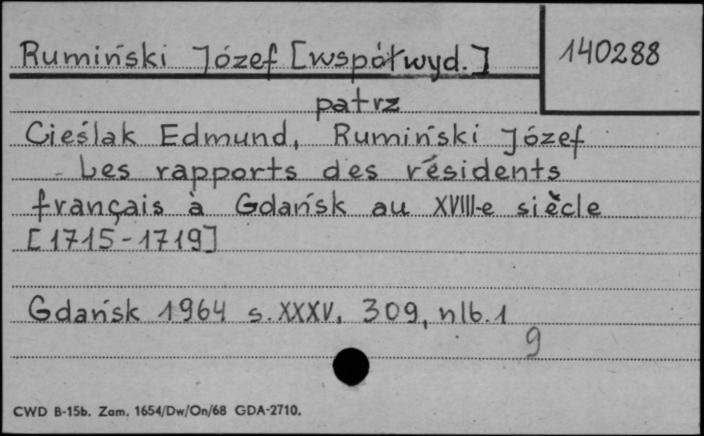 Rumiński Józef [współwyd.]
140288
patrz
Cieślak Edmund, Rumiński Józef
- Les rapports des résidents
français à Gdańsk au XVIII-e siècle
[1715-1719]
Gdańsk 1964 s. XXXV, 309, nlb. 1
9
CWD B-15b. Zam. 1654/Dw/On/68 GDA-2710.